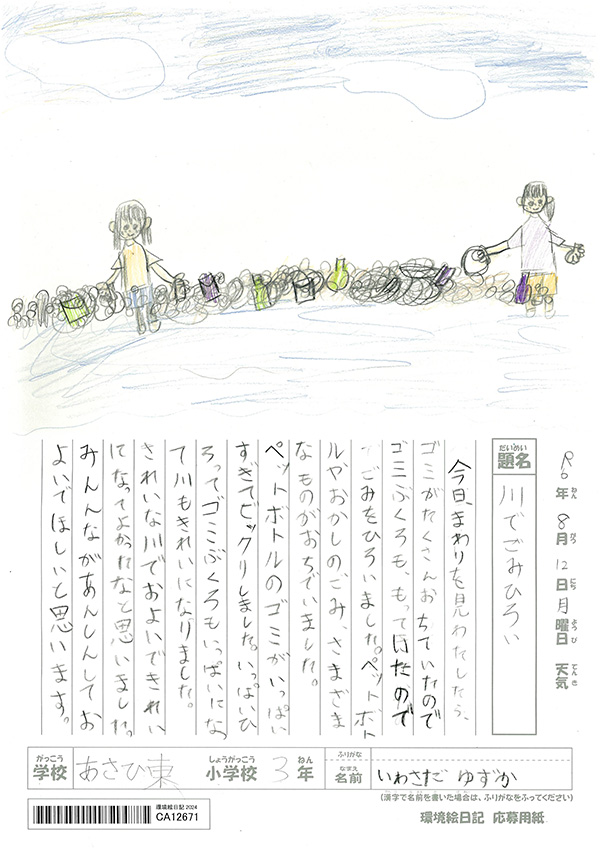 R6年 8月 12日 月曜日 天気
ねん がつ にち ようび てんき
だいめい
題名
川でごみひろい
今日、まわりを見わたしたら、
ゴミがたくさんおちていたので
ゴミぶくろも、もっていたので
ごみをひろいました。ペットボト
ルやおかしのごみ、さまざま
なものがおちていました。
ペットボトルのゴミがいっぱい
すぎてビックリしました。いっぱいひ
ろってゴミぶくろもいっぱいになっ
て川もきれいになりました。
きれいな川でおよいできれい
になってよかったなと思いました。
みんんながあんしんしてお
よいでほしいと思います。
がっこう
学校
あさひ東
しょうがっこう
小学校
3
ねん
年
ふりがな
なまえ
名前
いわさだ ゆずか
(漢字で名前を書いた場合は、ふりがなをふってください)
環境絵日記 2024
CA12671
環境絵日記 応募用紙